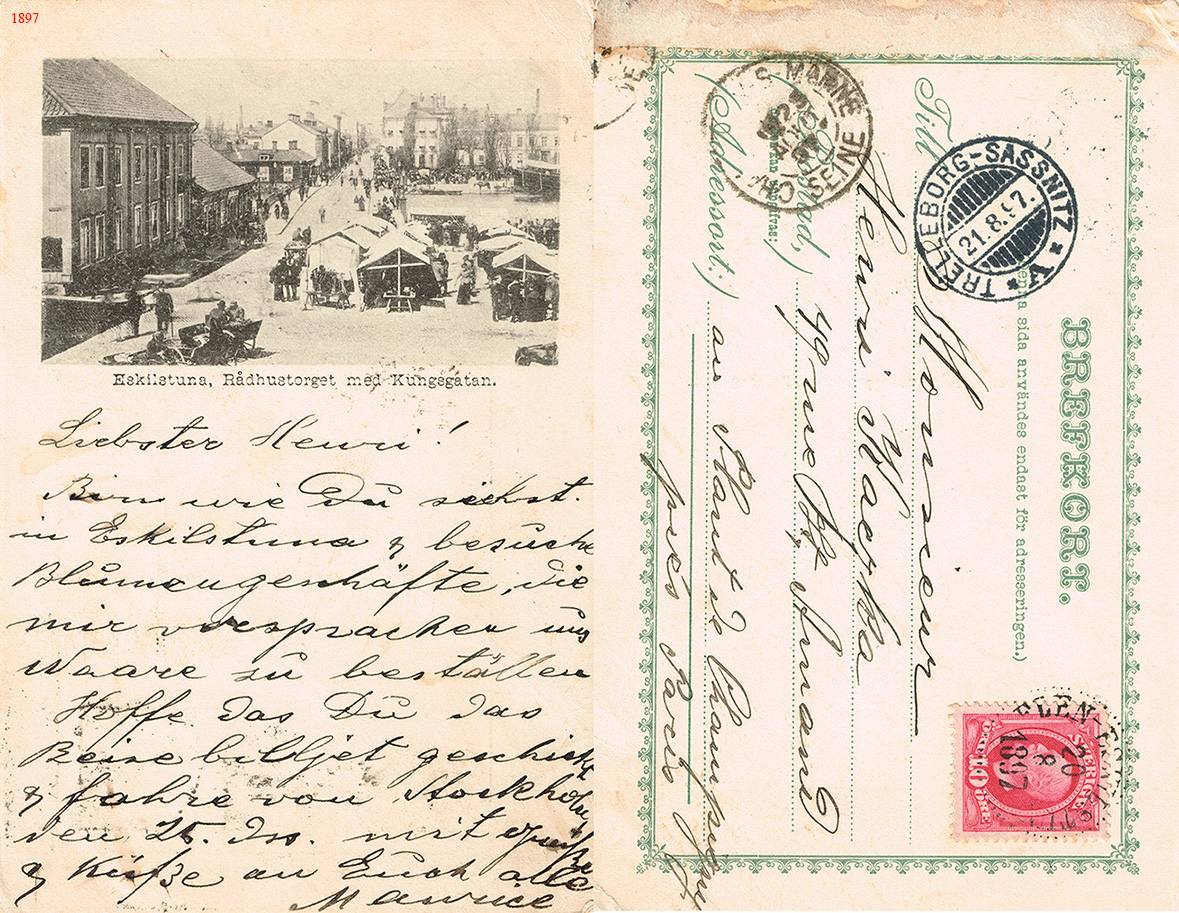 1897
Eskilstuna, Rådhustorget med Kungsgatan.
Liebster Henri!
Bin wie Du siehst
in Eskilstuna & besuche
Blumengeschäfte, die
mir versprachen uns
Waare zu bestellen
Hoffe das Du das
Reise billjet geschickt
& fahre von Stockholm
den 25. ds. mit Grüße
& Küße an Euch alle
Maurice
BREFKORT.
sida användes endast för adresseringen.)
Till
Monsieur
Henri Kaczka
(Bostad,
4 rue St Armand
(Adressort:)
au Plant de Champigny
près Paris
TRELLEBORG-SASSNITZ
21.8.97.
S MARNE
SEINE
FLEN-
20
8
1897
SVERIGE
10 ÖRE